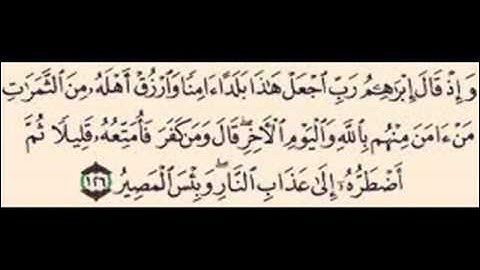 وَإِذْ قَالَ إِبْرَٰهِـۧمُ رَبِّ ٱجْعَلْ هَٰذَا بَلَدًا ءَامِنًا وَٱرْزُقْ أَهْلَهُۥ مِنَ ٱلثَّمَرَٰتِ
مَنْ ءَامَنَ مِنْهُم بِٱللَّهِ وَٱلْيَوْمِ ٱلْـَٔاخِرِ ۖ قَالَ وَمَن كَفَرَ فَأُمَتِّعُهُۥ قَلِيلًا ثُمَّ
أَضْطَرُّهُۥٓ إِلَىٰ عَذَابِ ٱلنَّارِ ۖ وَبِئْسَ ٱلْمَصِيرُ ١٢٦